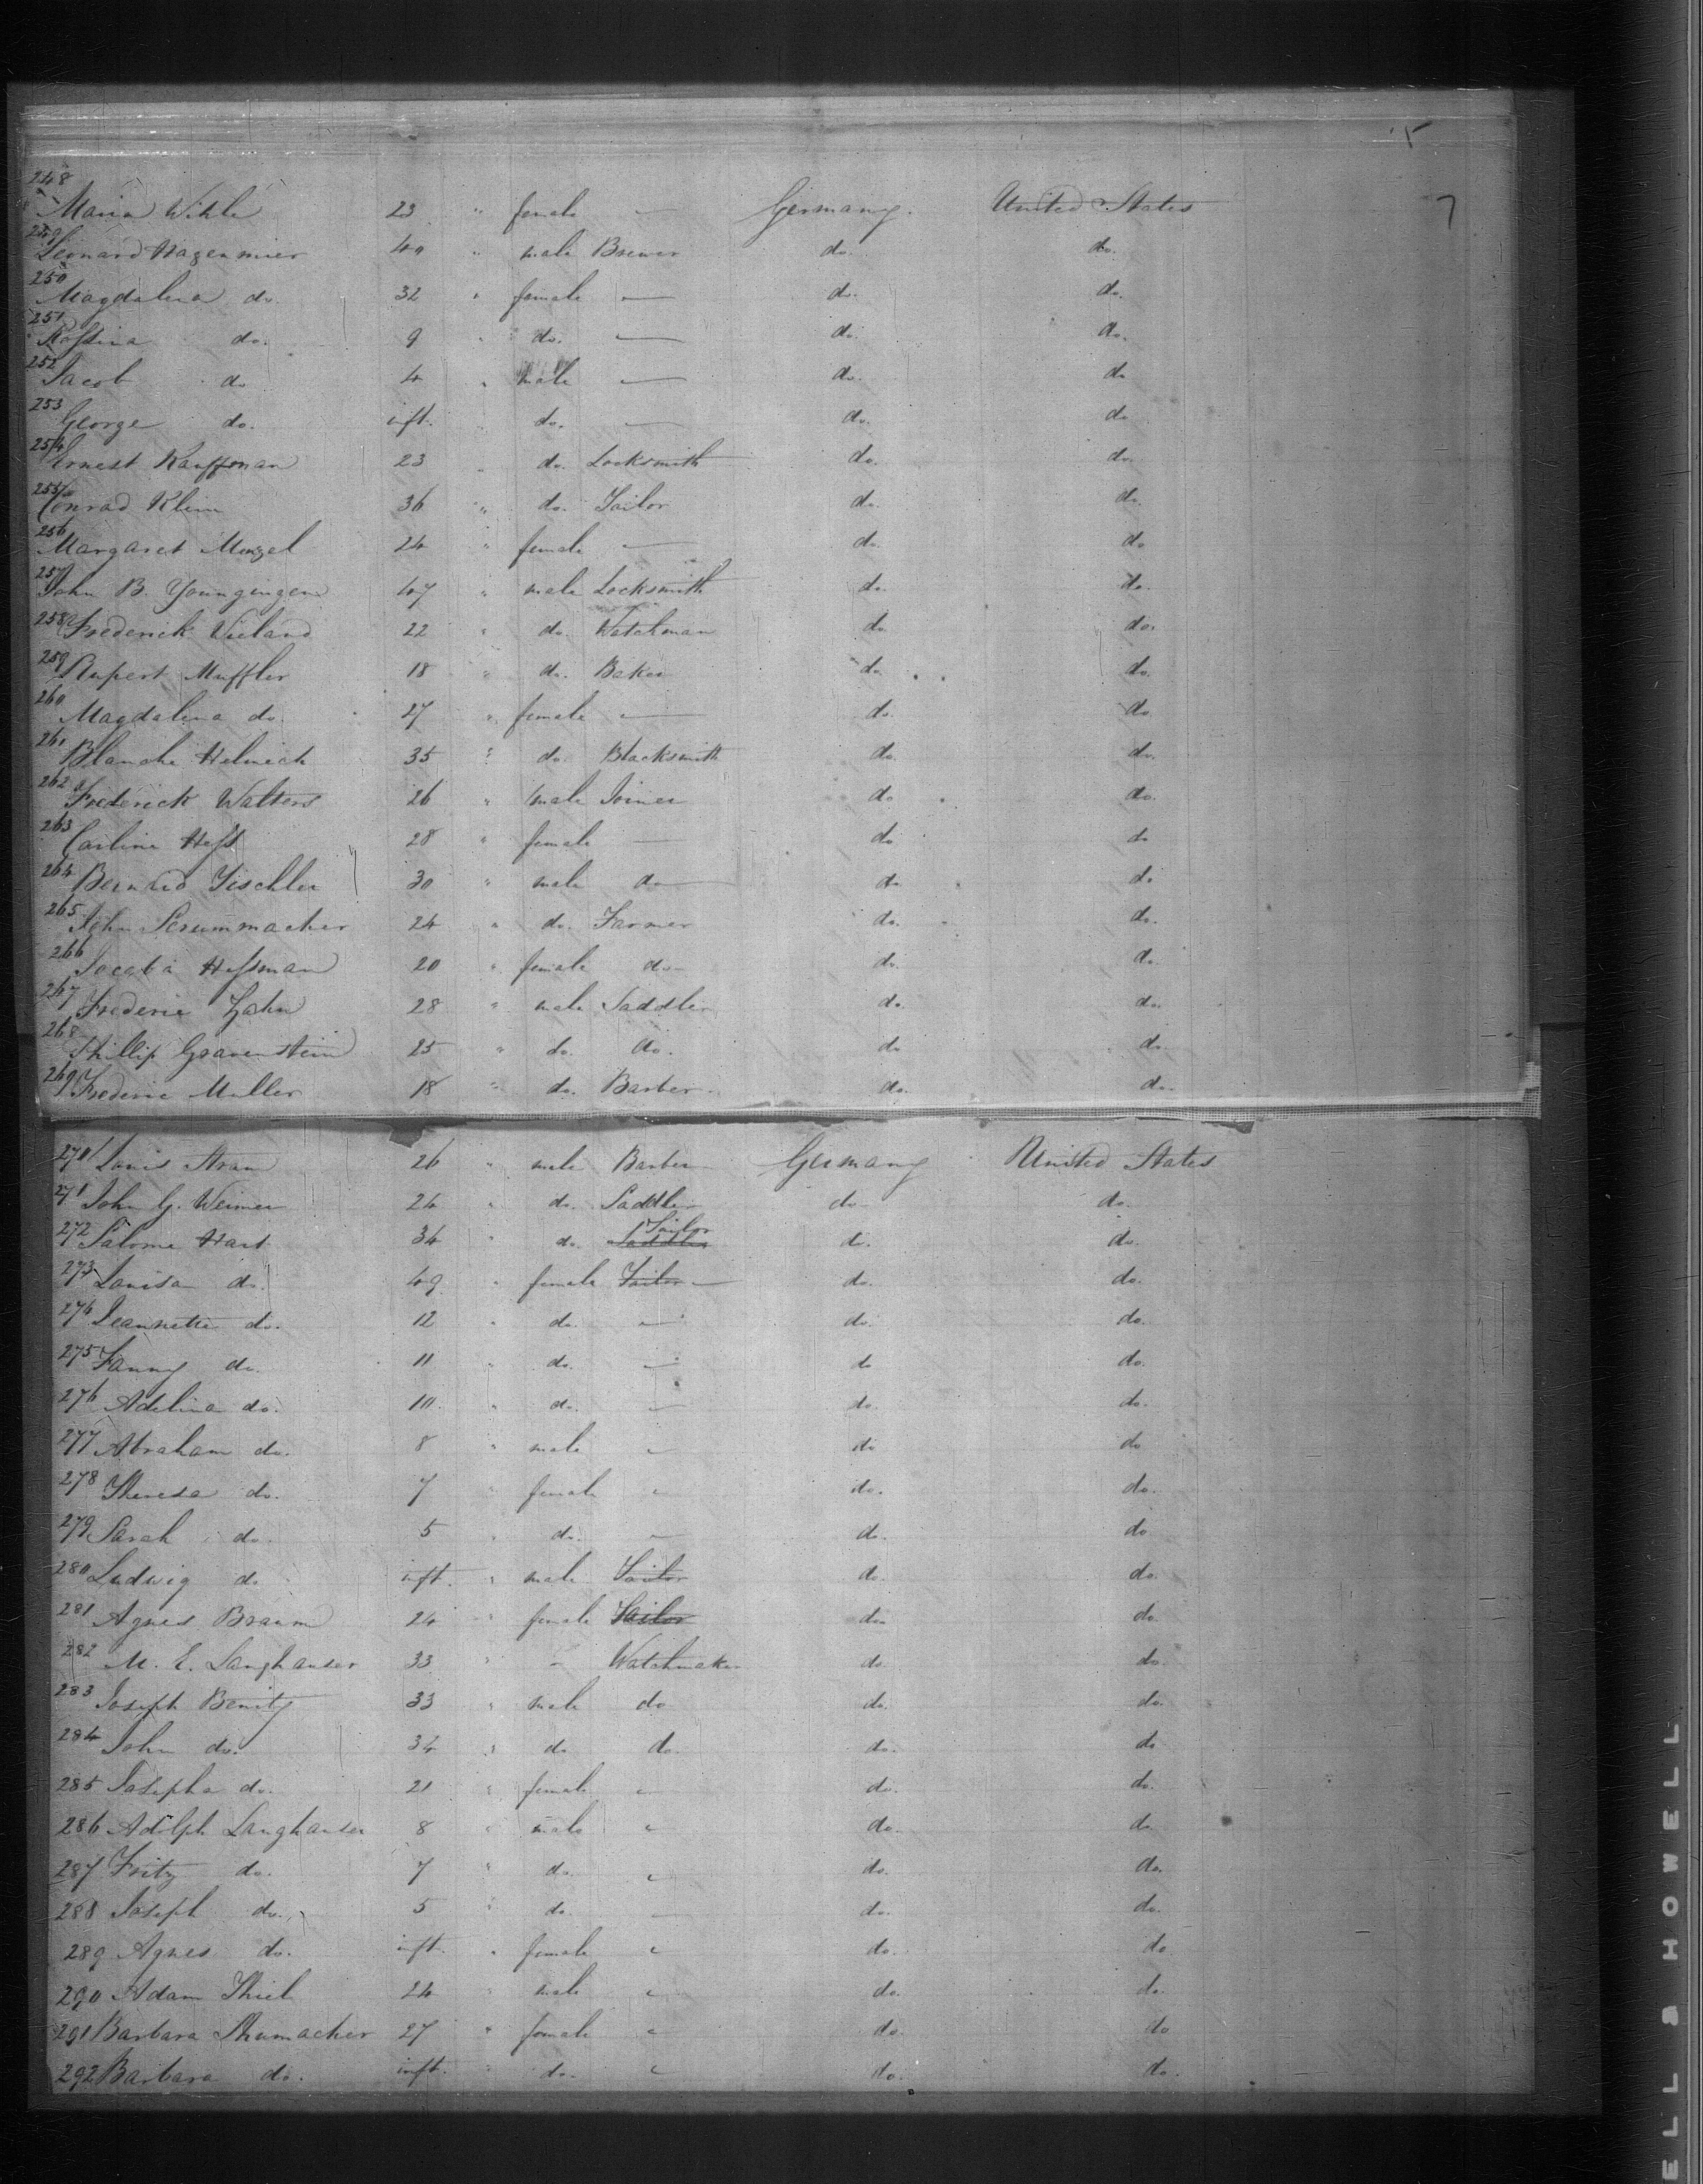 5
7
248 Maria Wihle 23 " female — Germany. United States
249 Leonard Hagenmier 40 " male Brewer do. do.
250 Magdalena do. 32 " female — do. do.
251 Rossina do. 9 " do. — do. do.
252 Jacob do 4 " male — do. do
253 George do. inft. " do. — do. do
254 Ernest Kauffman 23 " do. Locksmith do. do.
255 Conrad Klein 36 " do. Tailor do. do.
256 Margaret Menzel 24 " female — do. do
257 John B. Younginger 47 " male Locksmith do. do.
258 Frederick Wieland 22 " do. Watchman do. do.
259 Rupert Muffler 18 " do. Baker do. do.
260 Magdalena do. 27 " female — do. do
261 Blanche Helmich 35 " do. Blacksmith do. do.
262 Frederick Walters 26 " male Joiner do. do.
263 Carline Hess 28 " female — do do
264 Bernard Tischler 30 " male do do do
265 John Scrummacher 24 " do. Farmer do. do.
266 Jacobi Hessman 20 " female do do. do.
267 Frederic Zahn 28 " male Saddler do. do.
268 Phillip Gravenstein 25 " do. do. do do.
269 Frederic Muller 18 " do. Barber do. do.
270 Louis Stram 26 " male Barber Germany United States
271 John G. Weimer 24 " do. Saddler do do.
272 Salome Hart 34 " do. Saddler Tailor do. do.
273 Louisa do. 49 " female Tailor — do. do.
274 Jeannette do. 12 " do. — do. do.
275 Fanny do. 11 " do. — do do.
276 Adelina do. 10 " do. — do. do.
277 Abraham do. 8 " male — do do
278 Theresa do. 7 " female — do. do.
279 Sarah do. 5 " do. — do. do
280 Ludwig do. inft. " male Tailor do. do.
281 Agnes Braum 24 " female Tailor do do
282 M. E. Langhauser 33 " — Watchmaker do. do.
283 Joseph Benitz 33 " male do do. do.
284 John do. 34 " do do. do. do
285 Josepha do. 21 " female " do. do.
286 Adolph Langhauser 8 " male " do. do.
287 Fritz do. 7 " do. " do. do.
288 Joseph do. 5 " do. — do. do.
289 Agnes do. inft. " female " do. do
290 Adam Thiel 24 " male " do. do.
291 Barbara Shumacher 27 " female " do. do
292 Barbara do. inft. " do. " do. do.
ELL & HOWELL